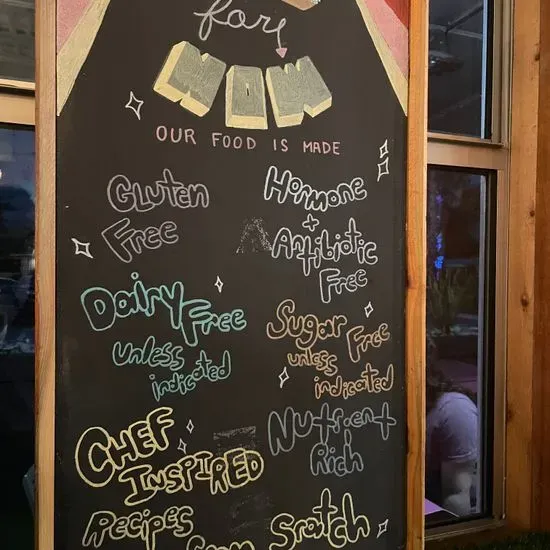 for
WOW
OUR FOOD IS MADE
Gluten
Free
Hormone
+
Antibiotic
Free
Dairy
Free
unless
indicated
Sugar
Free
unless
indicated
CHEF
INSPIRED
Nutrient
Rich
Recipes
from
Scratch